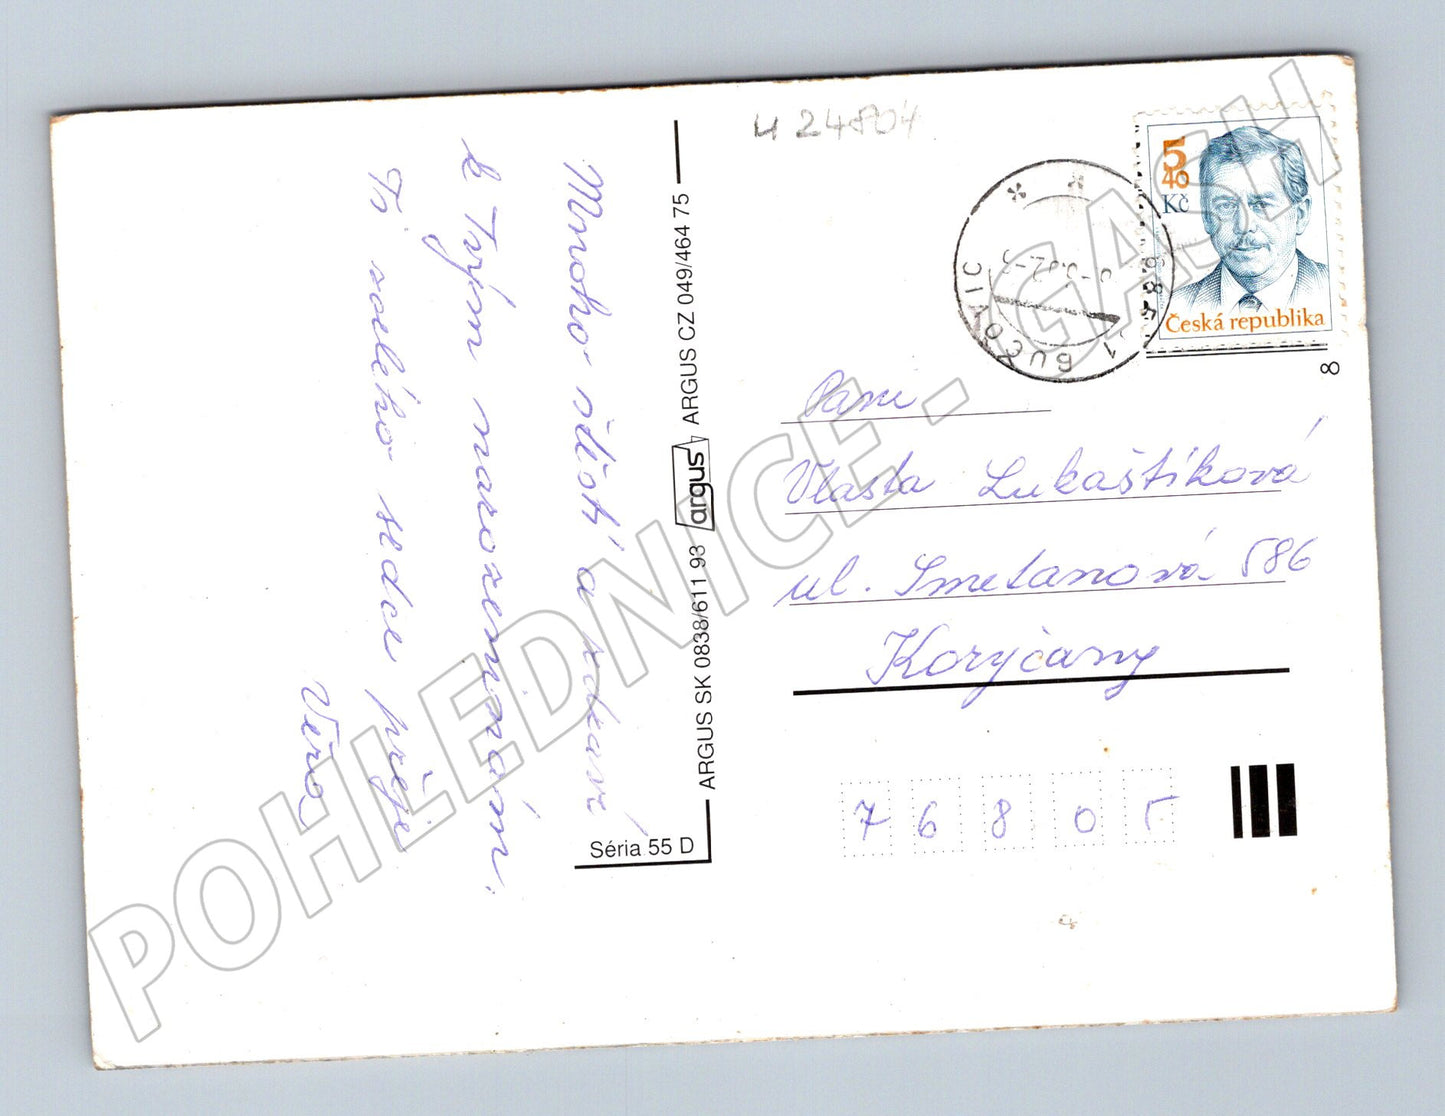 Mnoho štěstí a zdraví
k Tvým narozeninám.
Ti z celého srdce přeje
Věra
ARGUS SK 0838/611 93 argus ARGUS CZ 049/464 75
Séria 55 D
24804
5
40
Kč
Česká republika
685
1 BUČOVIC
8
Paní
Vlasta Lukaštíková
ul. Smetanová 586
Koryčany
76805
POHLEDNICE - GASH